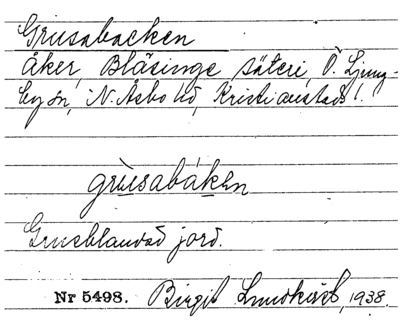 Grusabacken
åker, Blåsinge säteri, Ö. Ljung-
by sn, N. Åsbo hd, Kristianstads l.
grùsabáken
Grusblandad jord.
Nr 5498. Birgit Lundkvist, 1938.